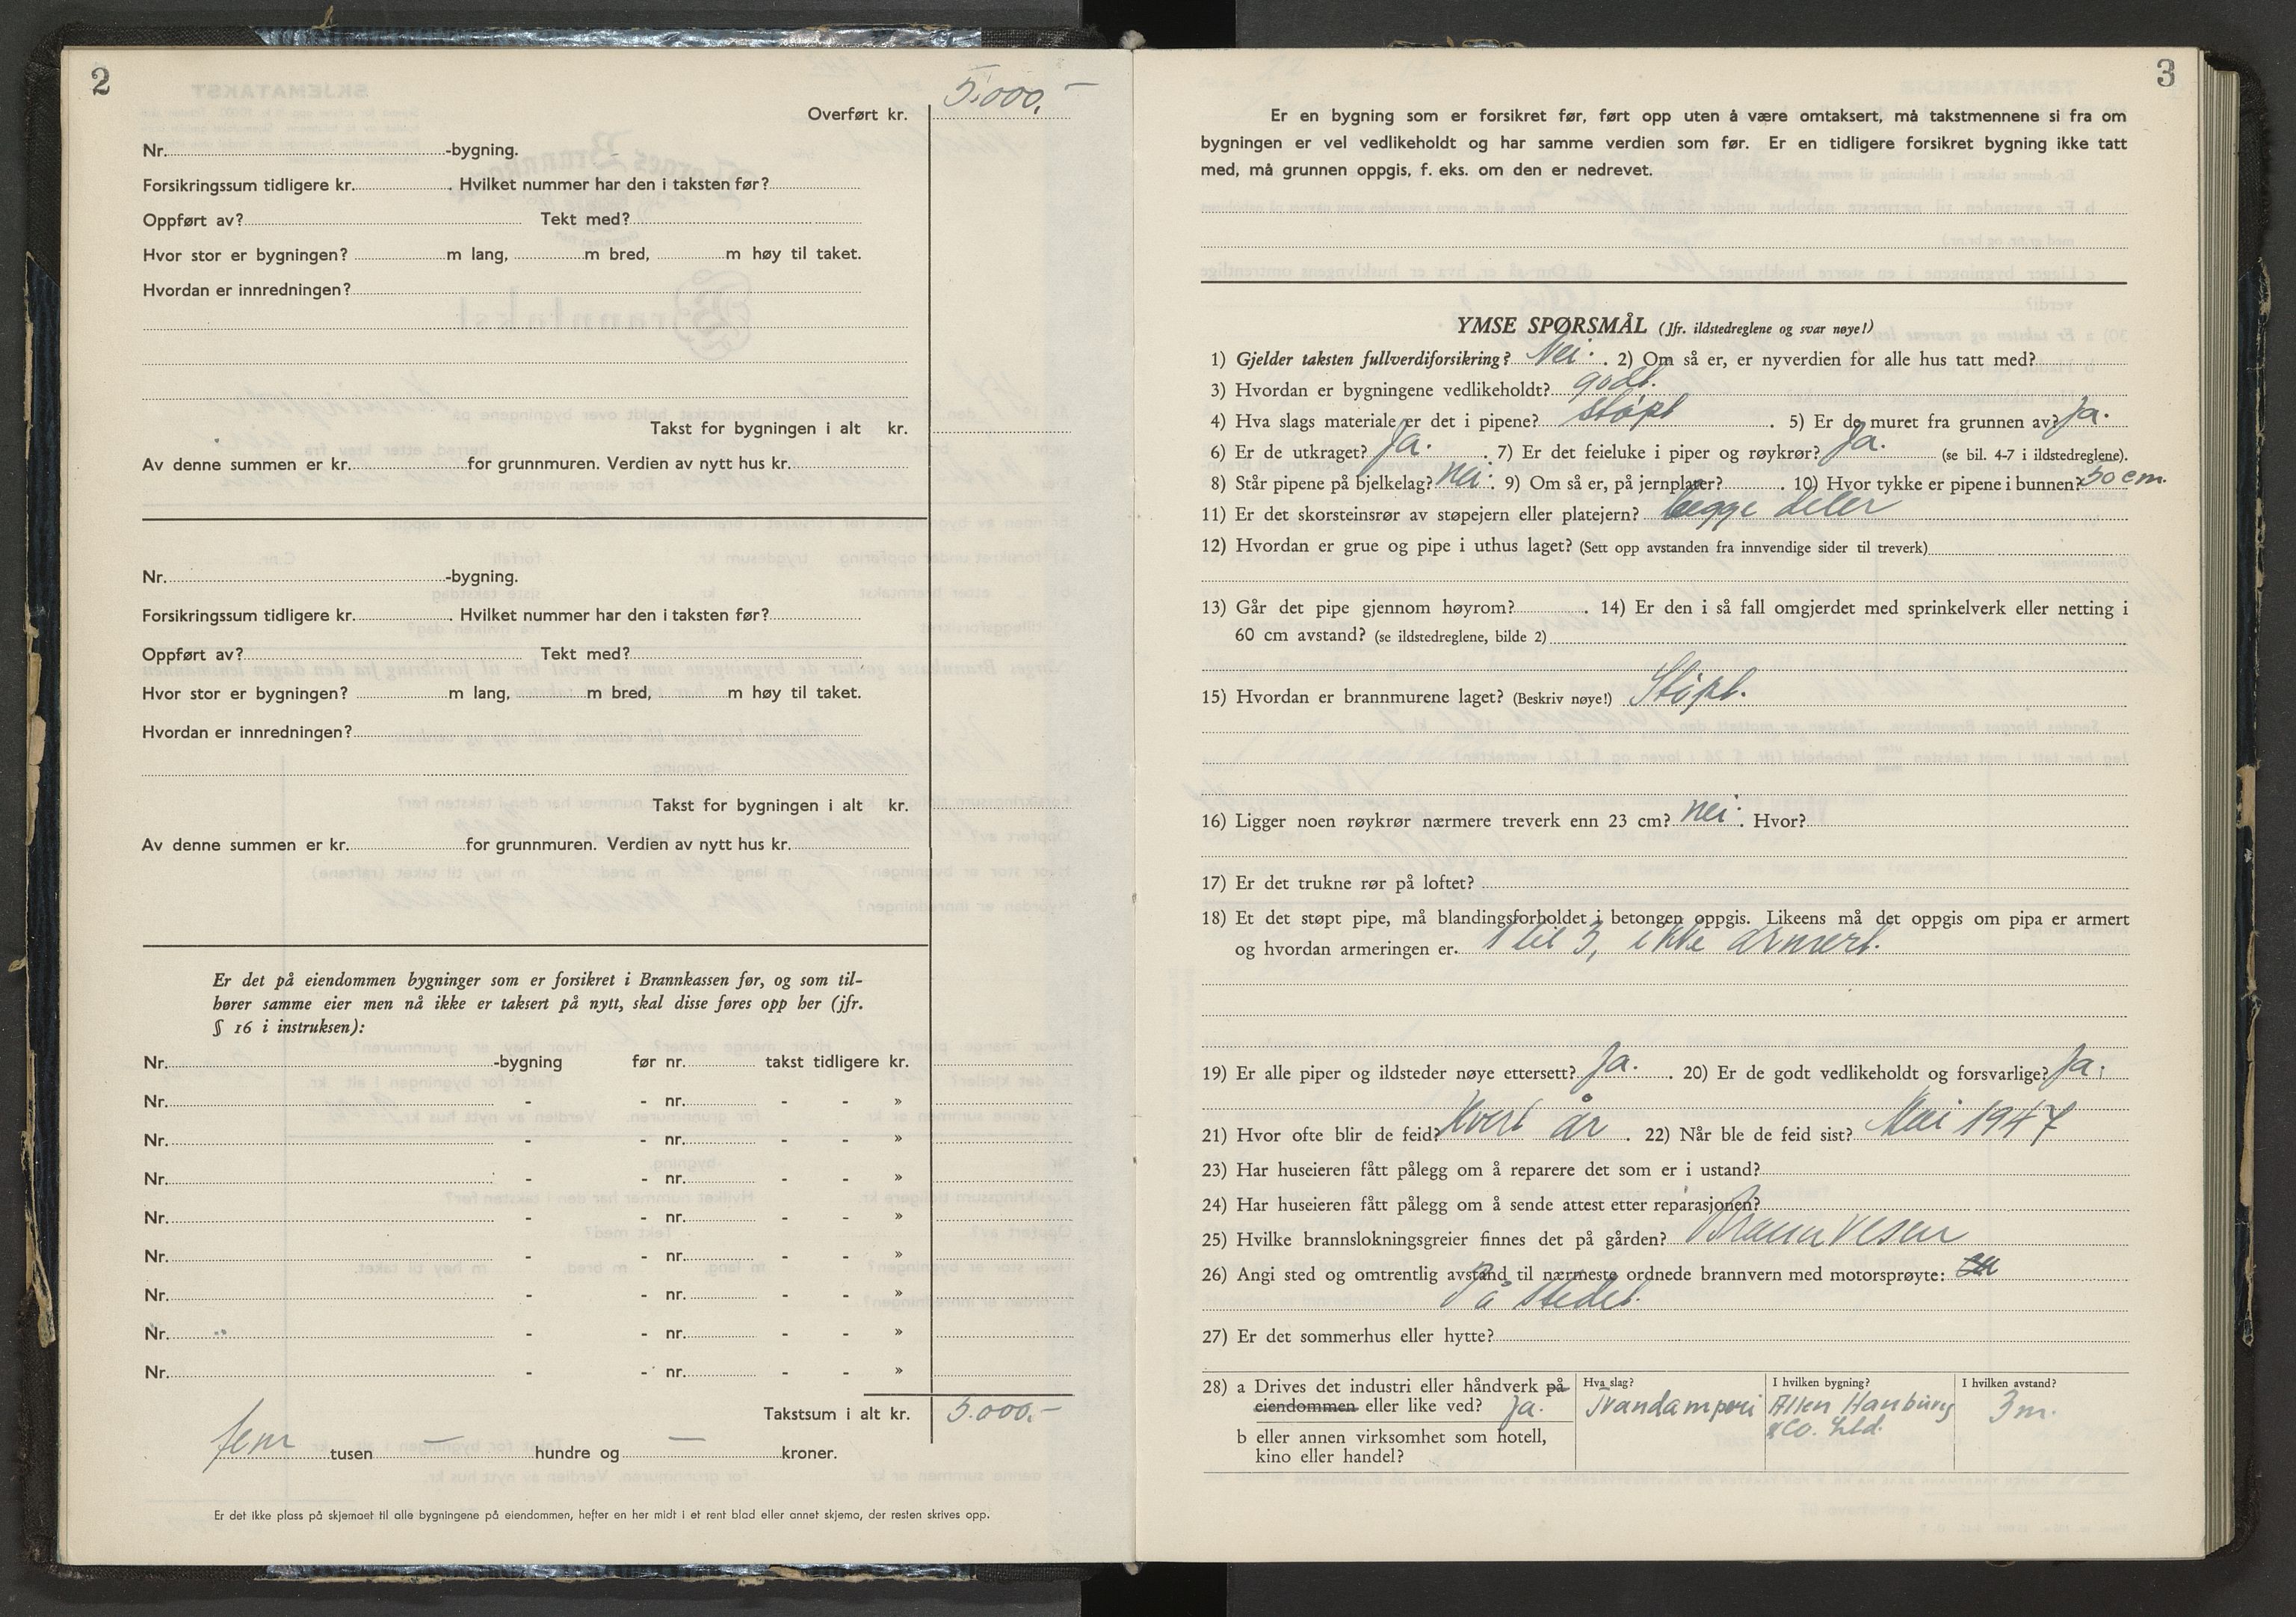 2
Overført kr. 5.000,-
Nr. -bygning.
Forsikringssum tidligere kr. . Hvilket nummer har den i taksten før?
Oppført av? Tekt med?
Hvor stor er bygningen? m lang, m bred, m høy til taket.
Hvordan er innredningen?
Takst for bygningen i alt kr.
Av denne summen er kr. for grunnmuren. Verdien av nytt hus kr.
Nr. -bygning.
Forsikringssum tidligere kr. . Hvilket nummer har den i taksten før?
Oppført av? Tekt med?
Hvor stor er bygningen? m lang, m bred, m høy til taket.
Hvordan er innredningen?
Takst for bygningen i alt kr.
Av denne summen er kr. for grunnmuren. Verdien av nytt hus kr.
Er det på eiendommen bygninger som er forsikret i Brannkassen før, og som til-
hører samme eier men nå ikke er taksert på nytt, skal disse føres opp her (jfr.
§ 16 i instruksen):
Nr. -bygning før nr. takst tidligere kr.
Nr. - - nr. - - »
Nr. - - nr. - - »
Nr. - - nr. - - »
Nr. - - nr. - - »
Nr. - - nr. - - »
Nr. - - nr. - - »
Nr. - - nr. - - »
Nr. - - nr. - - »
Takstsum i alt kr. 5.000.-
fem tusen — hundre og — kroner.
Er det ikke plass på skjemaet til alle bygningene på eiendommen, hefter en her midt i et rent blad eller annet skjema, der resten skrives opp.
3
Er en bygning som er forsikret før, ført opp uten å være omtaksert, må takstmennene si fra om
bygningen er vel vedlikeholdt og har samme verdien som før. Er en tidligere forsikret bygning ikke tatt
med, må grunnen oppgis, f. eks. om den er nedrevet.
YMSE SPØRSMÅL (Jfr. ildstedreglene og svar nøye!)
1) Gjelder taksten fullverdiforsikring? Nei. . 2) Om så er, er nyverdien for alle hus tatt med?
3) Hvordan er bygningene vedlikeholdt? godt.
4) Hva slags materiale er det i pipene? støpt . 5) Er de muret fra grunnen av? Ja.
6) Er de utkraget? Ja. . 7) Er det feieluke i piper og røykrør? Ja. (se bil. 4-7 i ildstedreglene).
8) Står pipene på bjelkelag? nei. . 9) Om så er, på jernplater? . 10) Hvor tykke er pipene i bunnen? 50 cm.
11) Er det skorsteinsrør av støpejern eller platejern? begge deler
12) Hvordan er grue og pipe i uthus laget? (Sett opp avstanden fra innvendige sider til treverk)
13) Går det pipe gjennom høyrom? . 14) Er den i så fall omgjerdet med sprinkelverk eller netting i
60 cm avstand? (se ildstedreglene, bilde 2)
15) Hvordan er brannmurene laget? (Beskriv nøye!) Støpt.
16) Ligger noen røykrør nærmere treverk enn 23 cm? nei. . Hvor?
17) Er det trukne rør på loftet?
18) Et det støpt pipe, må blandingsforholdet i betongen oppgis. Likeens må det oppgis om pipa er armert
og hvordan armeringen er. 1 til 3, ikke armert.
19) Er alle piper og ildsteder nøye ettersett? Ja. . 20) Er de godt vedlikeholdt og forsvarlige? Ja.
21) Hvor ofte blir de feid? Hvert år . 22) Når ble de feid sist? Mai 1947
23) Har huseieren fått pålegg om å reparere det som er i ustand?
24) Har huseieren fått pålegg om å sende attest etter reparasjonen?
25) Hvilke brannslokningsgreier finnes det på gården? Brannvesen
26) Angi sted og omtrentlig avstand til nærmeste ordnede brannvern med motorsprøyte:
På stedet.
27) Er det sommerhus eller hytte?
28) a Drives det industri eller håndverk på Hva slag? I hvilken bygning? I hvilken avstand?
eiendommen eller like ved? Ja. Trandamperi Allen Hanburys 3 m.
& Co. Ltd.
b eller annen virksomhet som hotell,
kino eller handel?